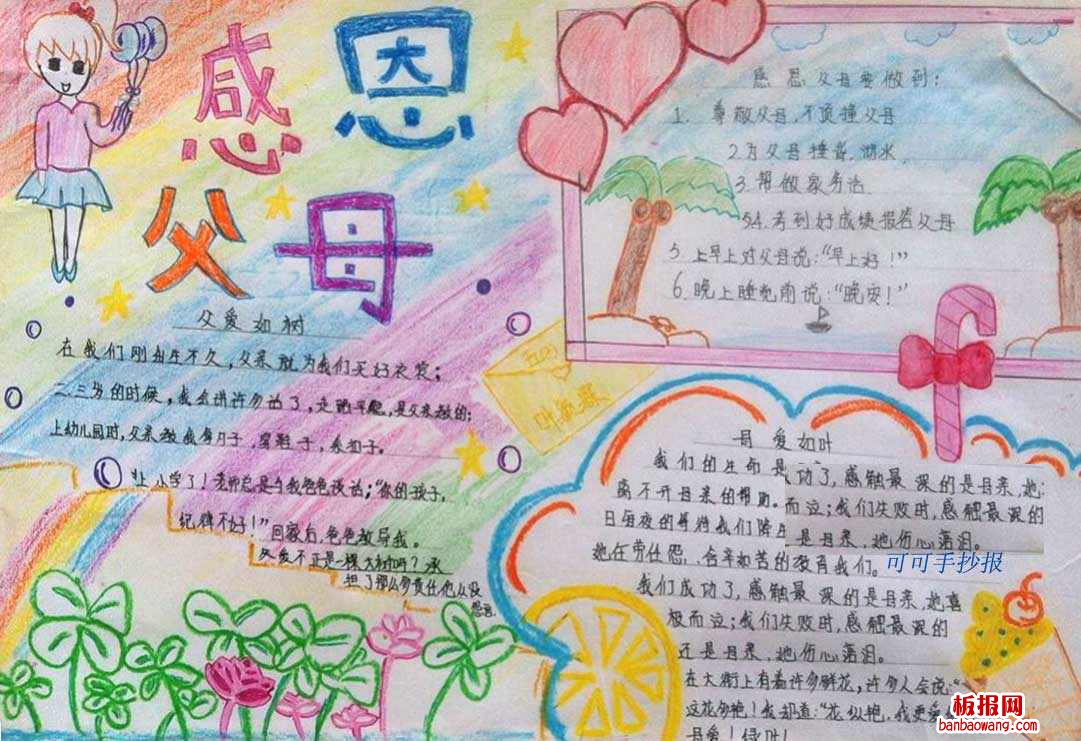 感恩
父母
父爱如树
在我们刚出生不久，父亲就为我们买好衣裳；
二、三岁的时候，我会讲许多话了，走跑平稳，是父亲教的；
上幼儿园时，父亲教我
上小学了！老师总是与我爸爸谈话；“你的孩子，
纪律不好！”回家后，爸爸教导我。
父爱不正是一棵大树吗？承
担了那么多责任他从没
感恩父母要做到：
1. 尊敬父母，不顶撞父母
2.为父母捶背，
3.帮做家务活
54.考到好成绩报答父母
5.上早上对父母说：“早上好！”
6.晚上睡觉前说：“晚安！”
母爱如叶
我们的生命是
功了，感触最 深的是母亲，她
离不开母亲的帮助。
而泣；我们失败时，感触最深的
日每夜的
我们
是母亲，她伤心落泪。
她任劳任怨，含辛如苦的教育我们。
可可手抄报
我们成功了，感触最 深的是母亲，她喜
极而泣；我们失败时，感触最深的
还是母亲，她伤心落泪。
在大街上有着许多鲜花，许多人会说：“
这花多艳！我知道：“花似艳，我更爱
母爱！绿叶！
板报网
banbaowang.com